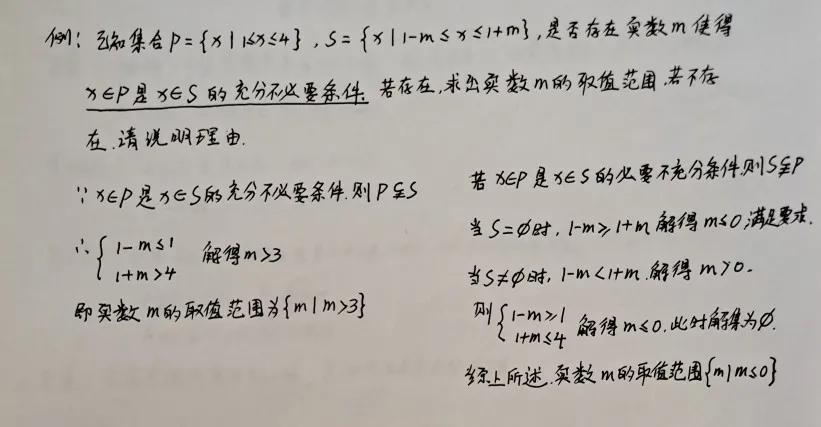 例: 已知集合P={x|1≤x≤4}, S={x|1-m≤x≤1+m}, 是否存在实数m使得
x∈P是x∈S的充分不必要条件. 若存在, 求出实数m的取值范围, 若不存
在. 请说明理由.
∵ x∈P是x∈S的充分不必要条件. 则P⫋S
∴ { 1-m≤1
1+m>4 解得m>3
即实数m的取值范围为{m|m>3}
若x∈P是x∈S的必要不充分条件.则S⫋P
当S=∅时, 1-m≥1+m 解得m≤0,满足要求.
当S≠∅时, 1-m<1+m.解得m>0.
则 { 1-m≥1
1+m≤4 解得m≤0. 此时解集为∅.
综上所述. 实数m的取值范围{m|m≤0}